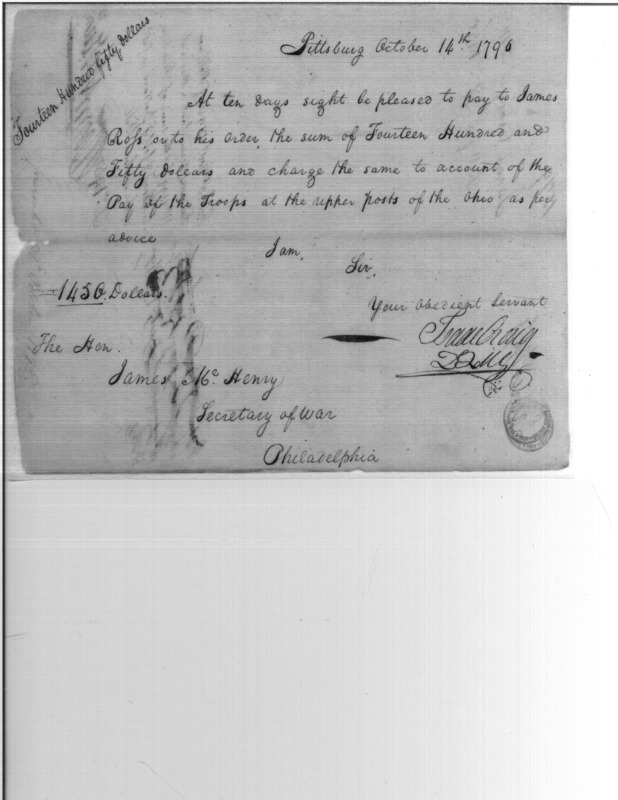 Fourteen Hundred fifty Dollars
Pittsburg October 14th 1796
At ten days sight be pleased to pay to James
Ross or to his order, the sum of Fourteen Hundred and
Fifty Dollars and charge the same to account of the
Pay of the Troops at the upper posts of the Ohio as per
advice
I am,
Sir,
1450 Dollars.
Your Obedient Servant
Isaac Craig
DQMG
The Hon.
James McHenry
Secretary of War
Philadelphia